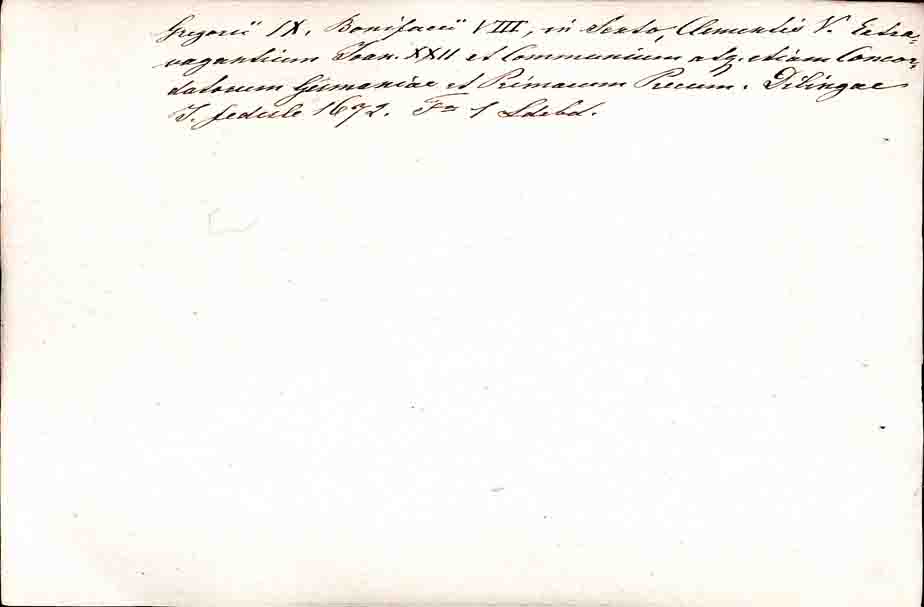 Gregorii IX. Bonifacii VIII, in Sexto, Clementis V. Extra-
vagantium Joan. XXII et Communium atq. etiam Concor-
datorum Germaniae et Primarum Precum. Dilingae
J. fedele 1672. Fo 1 Ldrbd.